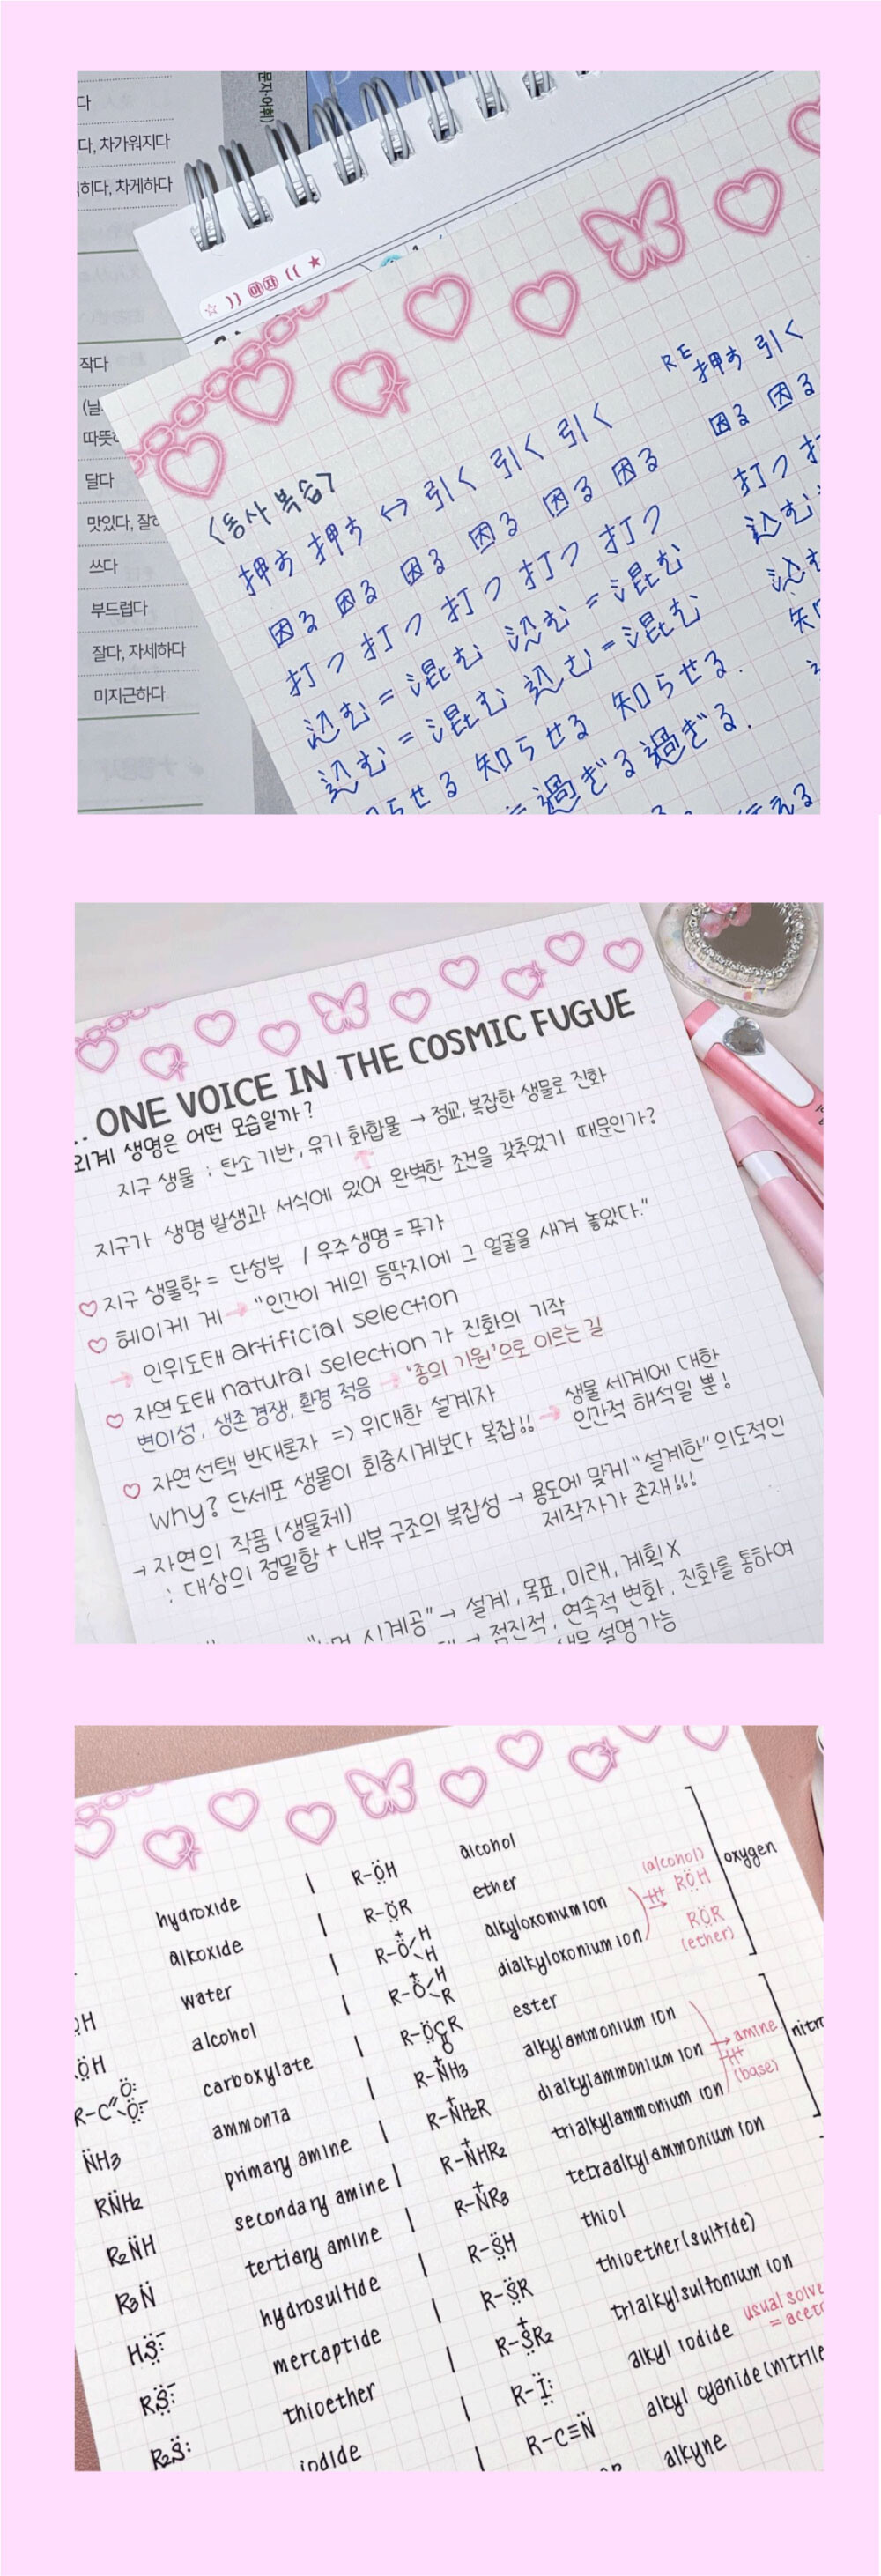 다
다, 차가워지다
히다, 차게하다
작다
(날
따뜻
달다
맛있다, 잘
쓰다
부드럽다
잘다, 자세하다
미지근하다
문자·어휘)
☆ )) 여자 (( ★
<동사 복습>
押す 押す ↔ 引く 引く 引く
因る 因る 因る 因る 因る 因る
打つ 打つ 打つ 打つ 打つ
込む = 混む 込む = 混む
込む = 混む 込む = 混む
らせる 知らせる 知らせる.
= 過ぎる 過ぎる.
RE 押す 引く
因る 因る
打つ 打
込む
込む
知
ONE VOICE IN THE COSMIC FUGUE
외계 생명은 어떤 모습일까?
지구 생물 : 탄소 기반, 유기 화합물 → 정교, 복잡한 생물로 진화
지구가 생명 발생과 서식에 있어 완벽한 조건을 갖추었기 때문인가?
♡ 지구 생물학 = 단성부 / 우주 생명 = 푸가
♡ 헤이케 게 → "인간이 게의 등딱지에 그 얼굴을 새겨 놓았다."
→ 인위도태 artificial selection
♡ 자연도태 natural selection 가 진화의 기작
변이성, 생존 경쟁, 환경 적응 → '종의 기원'으로 이르는 길
♡ 자연선택 반대론자 => 위대한 설계자
why? 단세포 생물이 회중시계보다 복잡!! → 생물 세계에 대한
인간적 해석일 뿐!
→ 자연의 작품 (생물체)
: 대상의 정밀함 + 내부 구조의 복잡성 → 용도에 맞게 "설계한" 의도적인
제작자가 존재!!!
시계공" → 설계, 목표, 미래, 계획 X
→ 점진적, 연속적 변화, 진화를 통하여
설명 가능
hydroxide | R-ÖH alcohol
alkoxide | R-ÖR ether
water | R-O+ H H alkyloxonium ion
ÖH alcohol | R-O+ H R dialkyloxonium ion
ÖH carboxylate | R-ÖCR O ester
R-C Ö: Ö:- ammonia | R-N+H3 alkylammonium ion
N̈H3 primary amine | R-N+H2R dialkylammonium ion
RN̈H2 secondary amine | R-N+HR2 trialkylammonium ion
R2N̈H tertiary amine | R-N+R3 tetraalkylammonium ion
R3N̈ hydrosulfide | R-S̈H thiol
HS̈:- mercaptide | R-S̈R thioether(sulfide)
RS̈:- thioether | R-S+R2 trialkylsulfonium ion
R2S̈: iodide | R-Ï: alkyl iodide
R-C≡N̈ alkyl cyanide (nitrile
alkyne
(alcohol)
-H+ → RÖH
RÖR
(ether)
oxygen
→ amine
-H+
(base)
nitr
usual solve
= aceto